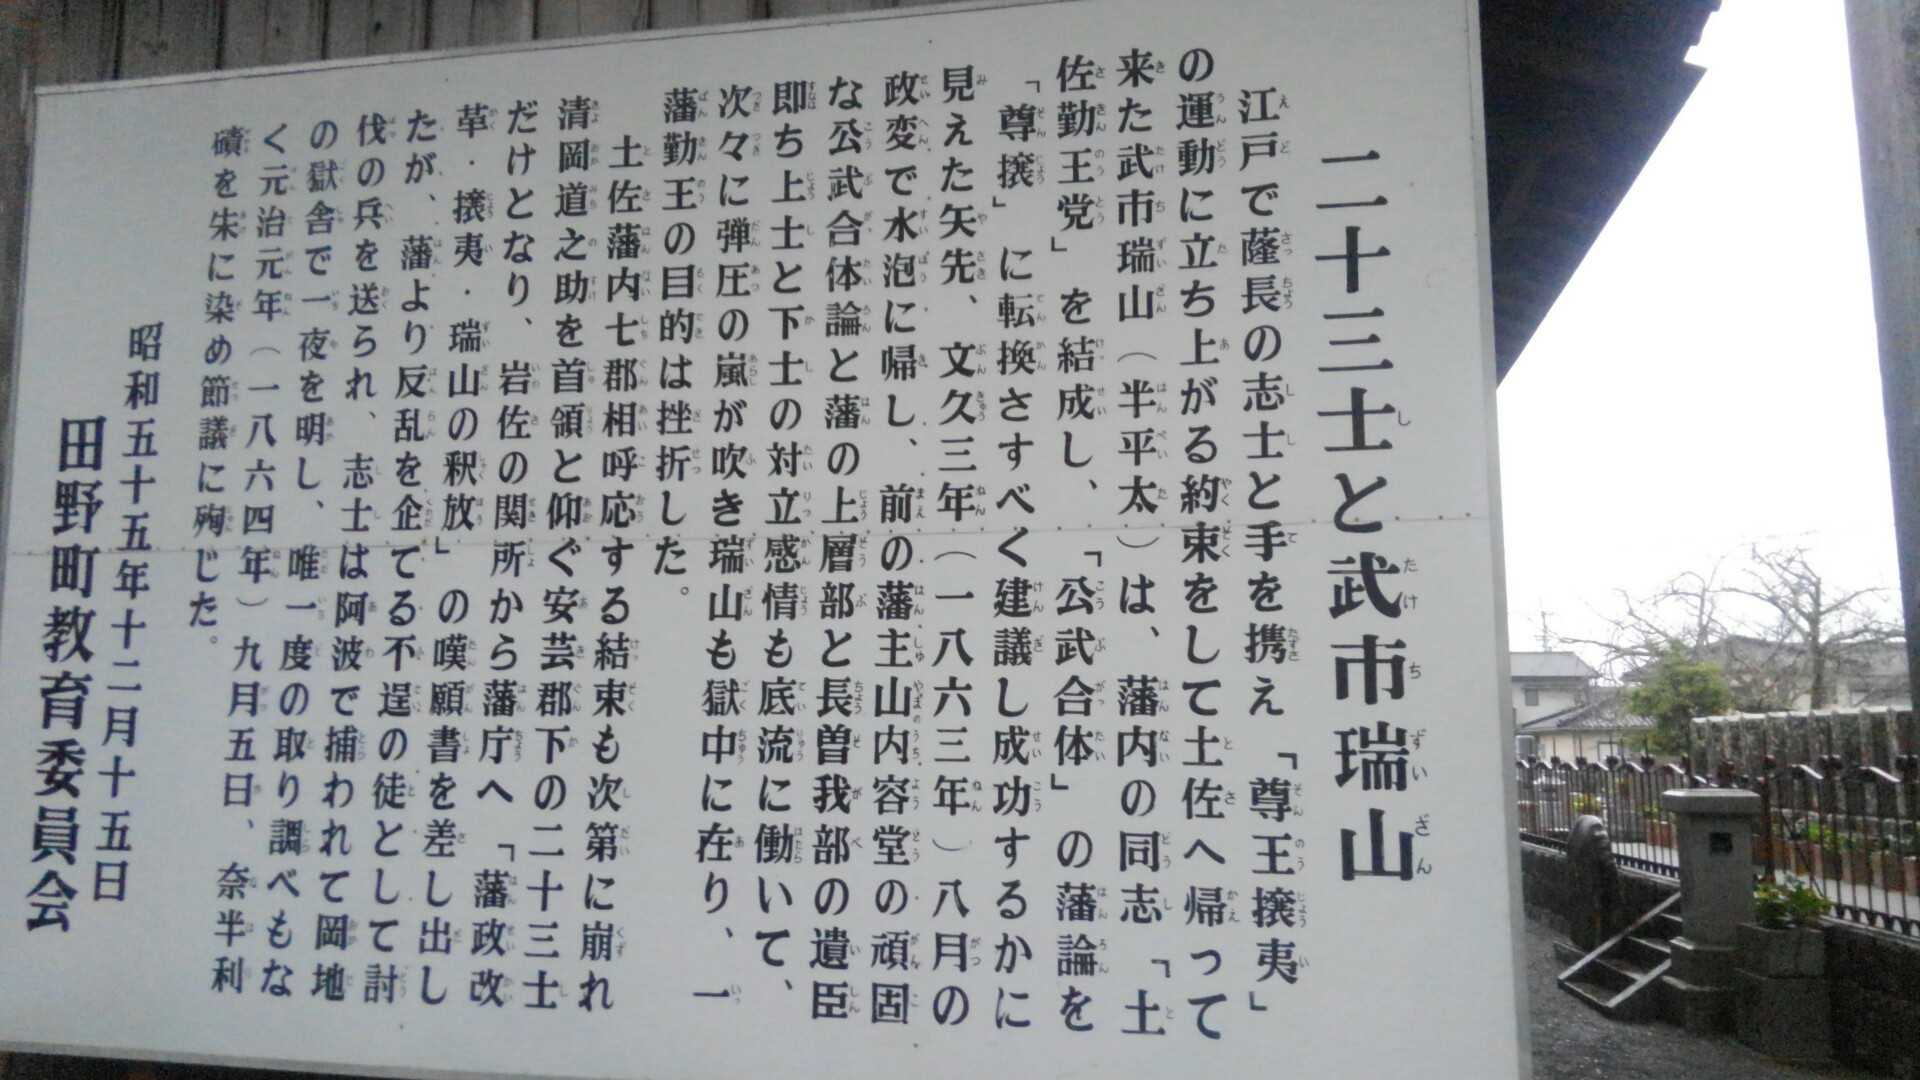 二十三士と武市瑞山
江戸で薩長の志士と手を携え「尊王攘夷」
の運動に立ち上がる約束をして土佐へ帰って
来た武市瑞山（半平太）は、藩内の同志「土
佐勤王党」を結成し、「公武合体」の藩論を
「尊攘」に転換さすべく建議し成功するかに
見えた矢先、文久三年（一八六三年）八月の
政変で水泡に帰し、前の藩主山内容堂の頑固
な公武合体論と藩の上層部と長曽我部の遺臣
即ち上士と下士の対立感情も底流に働いて、
次々に弾圧の嵐が吹き瑞山も獄中に在り、一
藩勤王の目的は挫折した。
土佐藩内七郡相呼応する結束も次第に崩れ
清岡道之助を首領と仰ぐ安芸郡下の二十三士
だけとなり、岩佐の関所から藩庁へ「藩政改
革・攘夷・瑞山の釈放」の嘆願書を差し出し
たが、藩より反乱を企てる不逞の徒として討
伐の兵を送られ、志士は阿波で捕われて岡地
の獄舎で一夜を明し、唯一度の取り調べもな
く元治元年（一八六四年）九月五日、奈半利
磧を朱に染め節議に殉じた。
昭和五十五年十二月十五日
田野町教育委員会